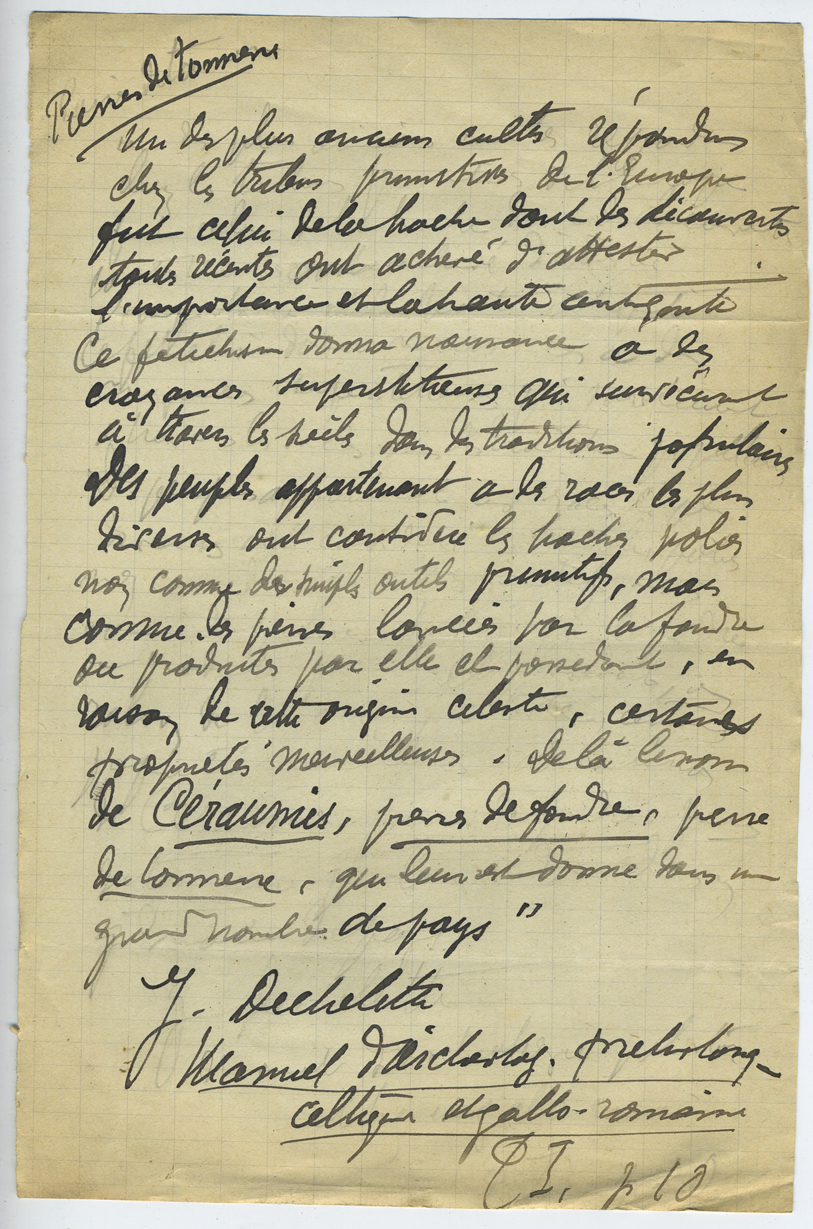 Pierres de tonnerre
Un des plus anciens cultes répandus
chez les tribus primitives de l'Europe
fut celui de la hache dont des découvertes
toutes récentes ont achevé d'attester
l'importance et la haute antiquité
Ce fétichisme donna naissance à des
croyances superstitieuses qui survécurent
à travers les siècles dans les traditions populaires
Des peuples appartenant a des races les plus
diverses ont considéré les haches polies
non comme des simples outils primitifs, mais
comme des pierres lancées par la foudre
ou produites par elle et possedant, en
raison de cette origine celeste, certaines
propriétés merveilleuses. De là le nom
de Céraunies, pierres de foudre, pierre
de tonnerre, qui leur est donné dans un
grand nombre de pays"
J. Dechelette
Manuel d'Archeolog. prehistorq-
celtique et gallo-romaine
T I, p 10